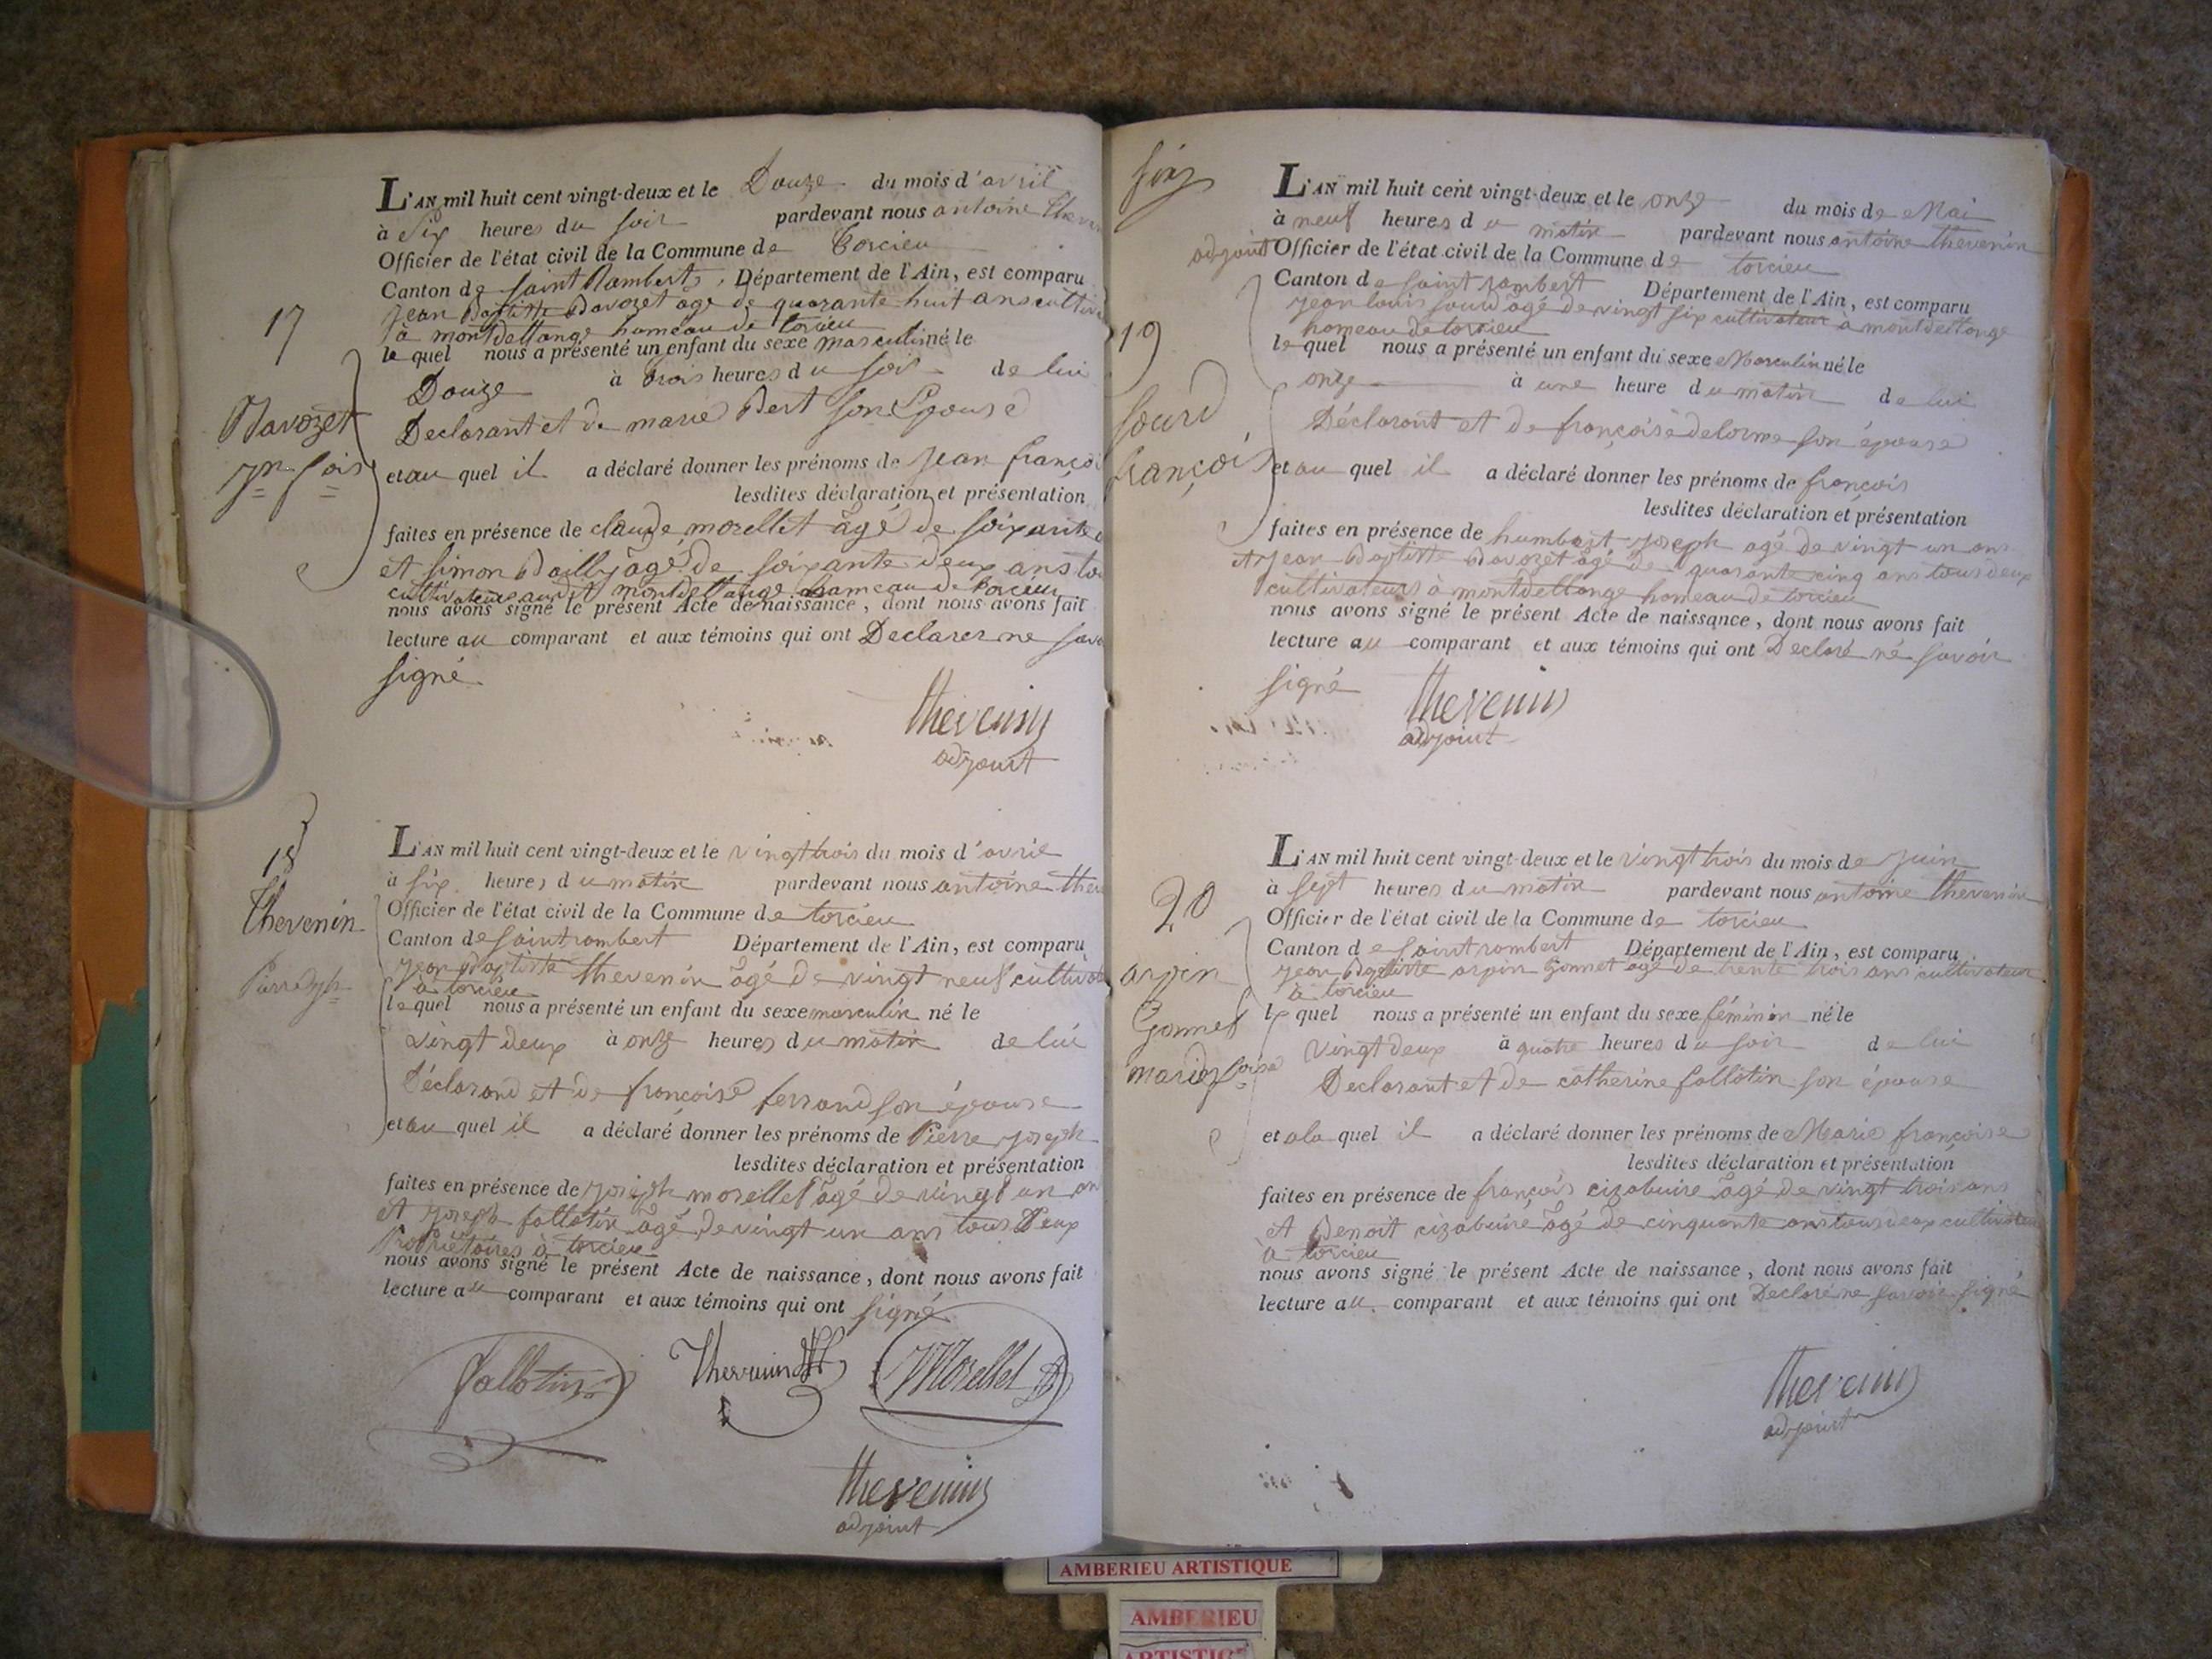 17
Bavozet
Jn fois
L'AN mil huit cent vingt-deux et le Douze du mois d'avril
à Six heures du soir pardevant nous antoine
Officier de l'état civil de la Commune de Torcieu
Canton de Saint Rambert, Département de l'Ain, est comparu
Jean Baptiste Bavozet âgé de quarante huit ans
à montdellange hameau de torcieu
le quel nous a présenté un enfant du sexe masculin né le
Douze à trois heures du soir de lui
Declarant et de marie Bert son Epouse
et au quel il a déclaré donner les prénoms de Jean
lesdites déclaration et présentation
faites en présence de claude morellet âgé de soixante
et simon Bailly âgé de soixante deux ans
cultivateurs audit montdellange hameau de torcieu
nous avons signé le présent Acte de naissance, dont nous avons fait
lecture au comparant et aux témoins qui ont Declarer ne
signé
thevenin
adjoint
18
Thevenin
Pierre Jph
L'AN mil huit cent vingt-deux et le vingt trois du mois d'avril
à six heures du matin pardevant nous antoine
Officier de l'état civil de la Commune de torcieu
Canton de saint rambert Département de l'Ain, est comparu
Jean Baptiste thevenin âgé de vingt neuf
à torcieu
le quel nous a présenté un enfant du sexe masculin né le
vingt deux à onze heures du matin de lui
Déclarand et de françoise ferrand son épouse
et au quel il a déclaré donner les prénoms de Pierre joseph
lesdites déclaration et présentation
faites en présence de joseph morellet âgé de vingt un
et joseph fallatin âgé de vingt un ans tous Deux
Propriétaires à torcieu
nous avons signé le présent Acte de naissance, dont nous avons fait
lecture au comparant et aux témoins qui ont signé
fallatin Thevenin Morellet
thevenin
adjoint
19
sourd
françois
L'AN mil huit cent vingt-deux et le onze du mois de Mai
à neuf heures du matin pardevant nous antoine thevenin
adjoint Officier de l'état civil de la Commune de torcieu
Canton de saint rambert Département de l'Ain, est comparu
jean louis sourd âgé de vingt six cultivateur à montdellange
hameau de torcieu
le quel nous a présenté un enfant du sexe Masculin né le
onze à une heure du matin de lui
Déclarant et de françoise delorme son épouse
et au quel il a déclaré donner les prénoms de françois
lesdites déclaration et présentation
faites en présence de humbert joseph agé de vingt un ans
et jean Baptiste Bavozet âgé de quarante cinq ans tous deux
cultivateurs à montdellange hameau de torcieu
nous avons signé le présent Acte de naissance, dont nous avons fait
lecture au comparant et aux témoins qui ont Declaré né savoir
signé
thevenin
adjoint
20
arpin
Gonnet
marie foise
L'AN mil huit cent vingt-deux et le vingt trois du mois de juin
à sept heures du matin pardevant nous antoine thevenin
Officier de l'état civil de la Commune de torcieu
Canton de saint rambert Département de l'Ain, est comparu
jean Baptiste arpin Gonnet âgé de trente trois ans cultivateur
à torcieu
le quel nous a présenté un enfant du sexe féminin né le
vingt deux à quatre heures du soir de lui
Declarant et de catherine fallatin son épouse
et ala quel il a déclaré donner les prénoms de Marie françoise
lesdites déclaration et présentation
faites en présence de françois cizabuire âgé de vingt trois ans
et Benoit cizabuire âgé de cinquante ans tous deux
à torcieu
nous avons signé le présent Acte de naissance, dont nous avons fait
lecture au comparant et aux témoins qui ont Declaré ne savoir signé
thevenin
adjoint
AMBERIEU ARTISTIQUE
AMBERIEU